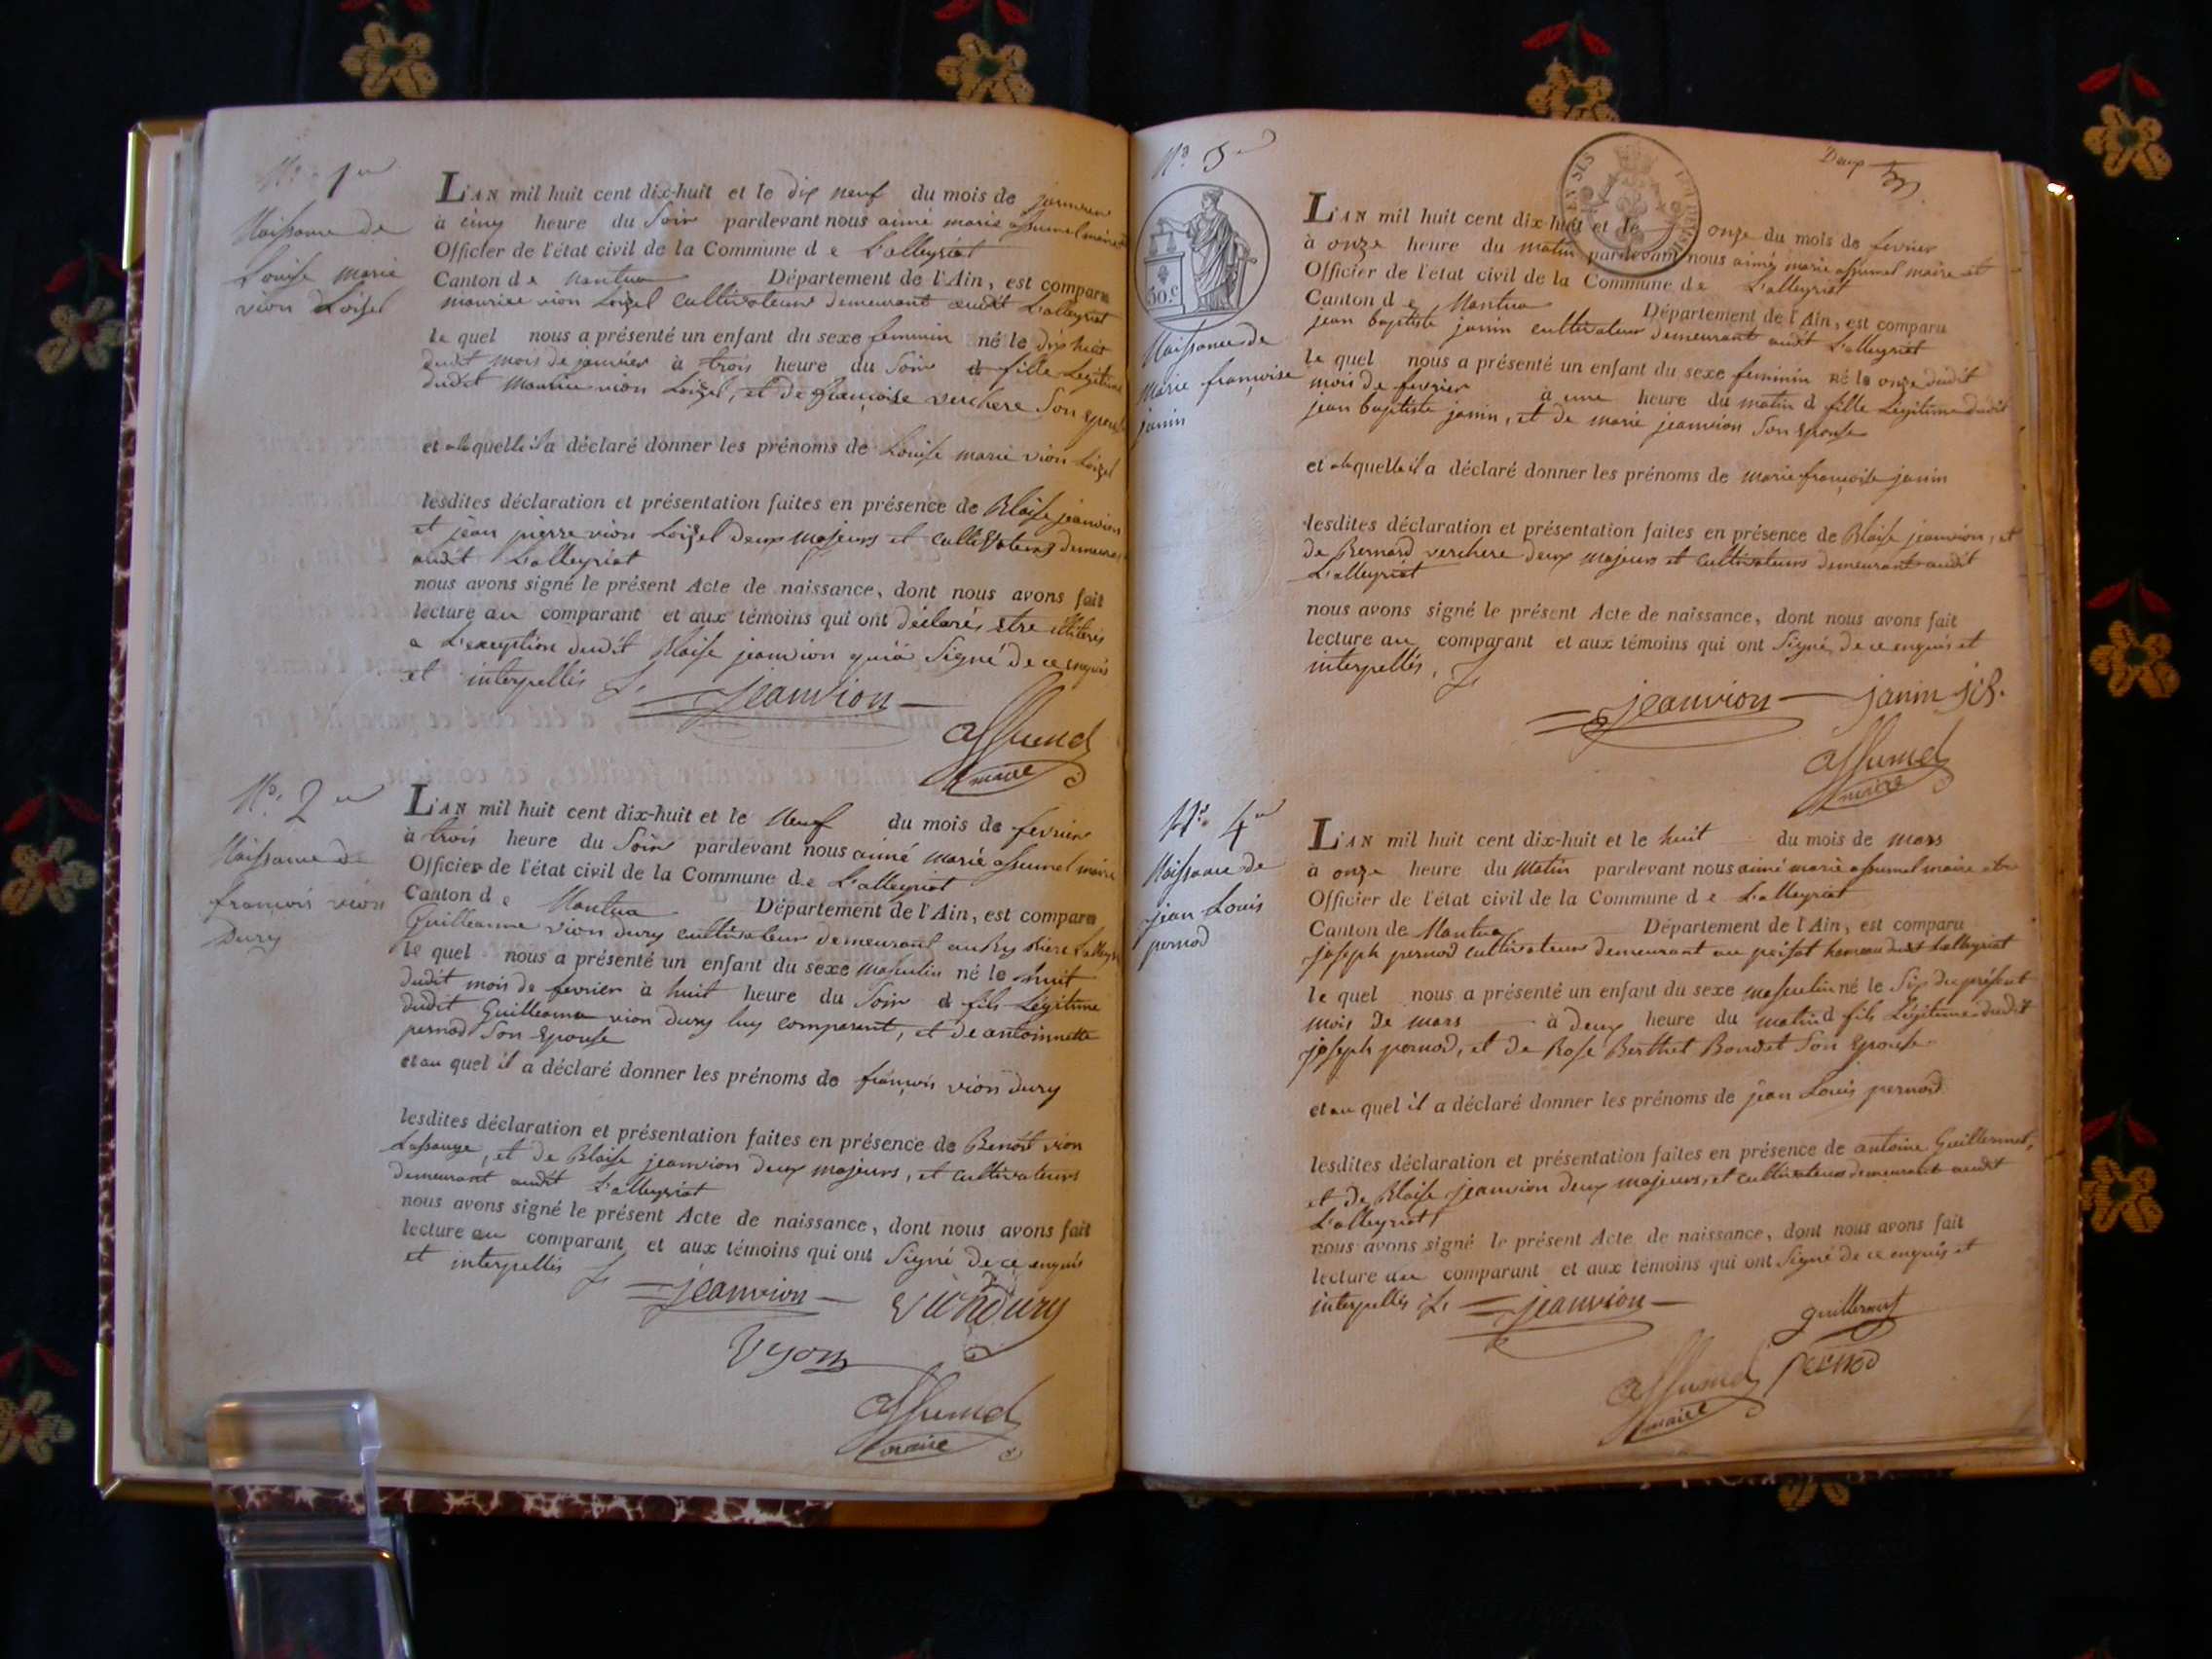 No. 1er
Naissance de
Louise marie
vion Loizel
L'AN mil huit cent dix-huit et le dix neuf du mois de janvier
à cinq heure du Soir pardevant nous aimé marie assumel maire
Officier de l'état civil de la Commune de L'alleyriat
Canton de Nantua Département de l'Ain, est comparu
maurice vion Loizel cultivateur demeurant audit L'alleyriat
le quel nous a présenté un enfant du sexe feminin né le dix huit
dudit mois de janvier à trois heure du Soir d fille Légitime
dudit Maurice vion Loizel, et de françoise verchere Son Epouse
et a la quelle il a déclaré donner les prénoms de Louise marie vion Loizel
lesdites déclaration et présentation faites en présence de Blaise jeanvion
et jean pierre vion Loizel deux majeurs et cultivateurs demeurant
audit L'alleyriat
nous avons signé le présent Acte de naissance, dont nous avons fait
lecture au comparant et aux témoins qui ont déclarés Etre illiterés
a L'exception dudit Blaise jeanvion qui a Signé de ce enquis
et interpellés
jeanvion
assumel
maire
No. 2
Naissance de
francois vion
Dury
L'AN mil huit cent dix-huit et le Neuf du mois de fevrier
à trois heure du Soir pardevant nous aimé marie assumel maire
Officier de l'état civil de la Commune de L'alleyriat
Canton de Nantua Département de l'Ain, est comparu
Guilleaume vion dury cultivateur demeurant L'alleyriat
le quel nous a présenté un enfant du sexe masculin né le huit
dudit mois de fevrier à huit heure du Soir d fils Légitime
dudit Guilleaume vion dury luy comparant, et de antoinnette
pernod Son Epouse
et au quel il a déclaré donner les prénoms de françois vion dury
lesdites déclaration et présentation faites en présence de Benoit vion
Lassauge, et de Blaise jeanvion deux majeurs, et cultivateurs
demeurant audit L'alleyriat
nous avons signé le présent Acte de naissance, dont nous avons fait
lecture au comparant et aux témoins qui ont Signé de ce enquis
et interpellés
jeanvion viondury
vyon
assumel
maire
No. 3
Deux
50.c
Naissance de
Marie françoise
janin
L'AN mil huit cent dix-huit et le onze du mois de fevrier
à onze heure du matin pardevant nous aimé marie assumel maire et
Officier de l'état civil de la Commune de L'alleyriat
Canton de Nantua Département de l'Ain, est comparu
jean baptiste janin cultivateur demeurant audit L'alleyriat
le quel nous a présenté un enfant du sexe feminin né le onze dudit
mois de fevrier à une heure du matin d fille Légitime dudit
jean baptiste janin, et de marie jeanvion Son Epouse
et a la quelle il a déclaré donner les prénoms de marie françoise janin
lesdites déclaration et présentation faites en présence de Blaise jeanvion, et
de Bernard verchere deux majeurs et cultivateurs demeurant audit
L'alleyriat
nous avons signé le présent Acte de naissance, dont nous avons fait
lecture au comparant et aux témoins qui ont Signé, de ce enquis et
interpellés,
jeanvion janin fils.
assumel
maire
No. 4
Naissance de
jean Louis
pernod
L'AN mil huit cent dix-huit et le huit du mois de mars
à onze heure du Matin pardevant nous aimé marie assumel maire et
Officier de l'état civil de la Commune de L'alleyriat
Canton de Nantua Département de l'Ain, est comparu
joseph pernod cultivateur demeurant au hameau dudit L'alleyriat
le quel nous a présenté un enfant du sexe masculin né le Six du présent
mois de mars à deux heure du matin d fils Légitime dudit
joseph pernod, et de Rose Berthet Bondet Son Epouse
et au quel il a déclaré donner les prénoms de jean Louis pernod
lesdites déclaration et présentation faites en présence de antoine Guillermet,
et de Blaise jeanvion deux majeurs, et cultivateurs demeurant audit
L'alleyriat
nous avons signé le présent Acte de naissance, dont nous avons fait
lecture au comparant et aux témoins qui ont Signé de ce enquis et
interpellés
jeanvion guillermet
pernod
assumel
maire